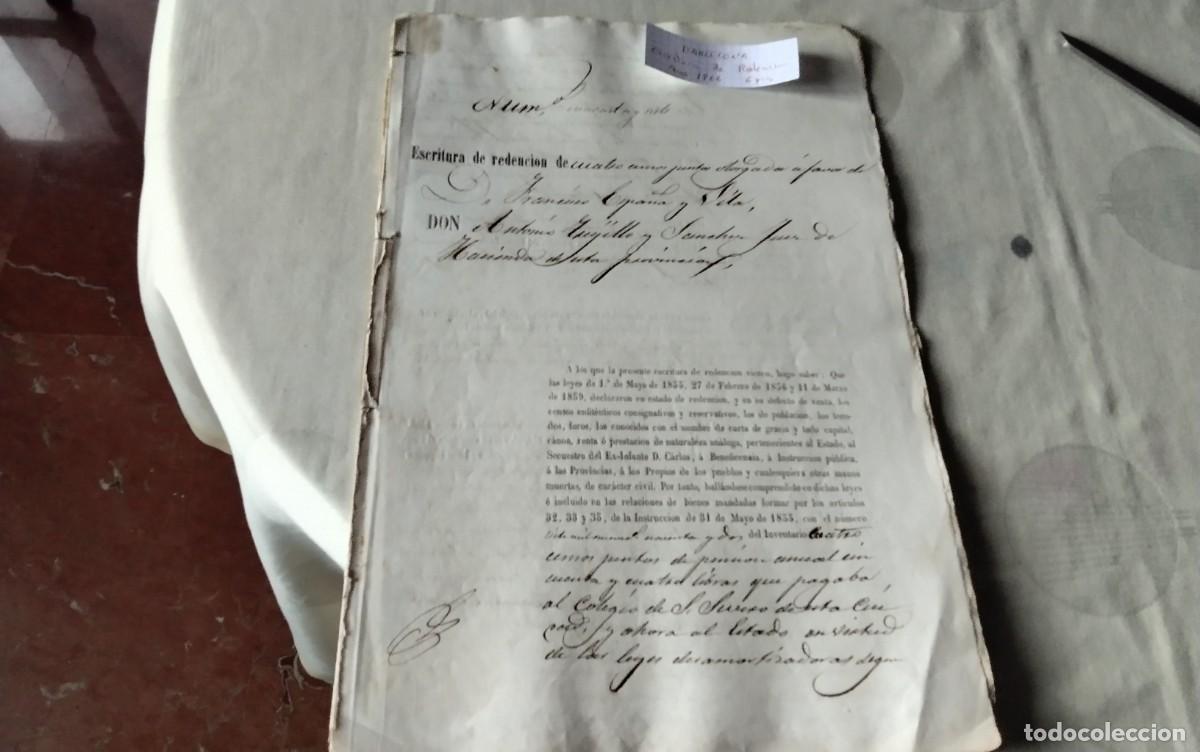 BARCELONA
de Redencion
Num.º
Escritura de redencion de cuatro censos juntos otorgada á favor de
D. Francisco España y Vila,
DON Antonio Trujillo y Sanchez Juez de
Hacienda de esta provincia,
A los que la presente escritura de redencion vieren, hago saber: Que
las leyes de 1.º de Mayo de 1855, 27 de Febrero de 1856 y 11 de Marzo
de 1859, declararon en estado de redencion, y en su defecto de venta, los
censos enfitéuticos consignativos y reservativos, los de poblacion, los treu-
dos, foros, los conocidos con el nombre de carta de gracia y todo capital,
cánon, renta ó prestacion de naturaleza análoga, pertenecientes al Estado, al
Secuestro del Ex-Infante D. Cárlos, á Beneficencia, á Instruccion pública,
á las Provincias, á los Propios de los pueblos y cualesquiera otras manos
muertas, de carácter civil. Por tanto, hallándose comprendido en dichas leyes
é incluido en las relaciones de bienes mandadas formar por los artículos
32, 33 y 35, de la Instruccion de 31 de Mayo de 1855, con el número
noventa y dos del Inventario Cuatro
censos juntos de pension anual cin
cuenta y cuatro libras que pagaba
al Colegio de S. Severo de esta Ciu
dad, y ahora al Estado en virtud
de las leyes desamortizadoras segun
todocoleccion